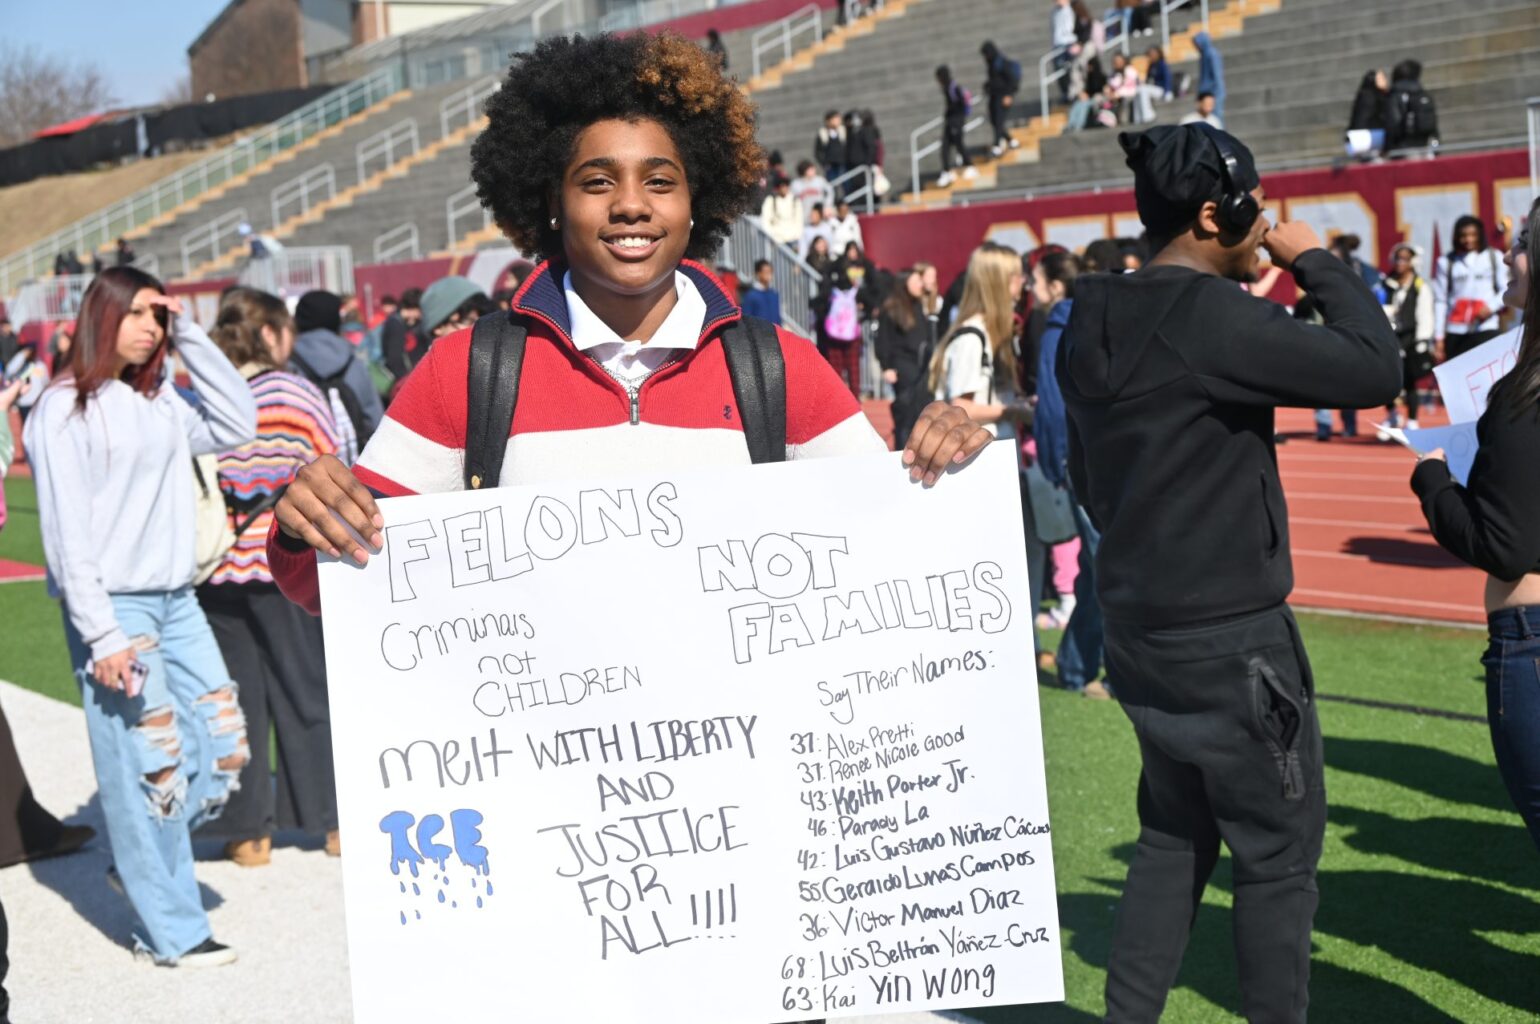 FELONS
NOT
FAMILIES
Criminals
not
CHILDREN
melt
ICE
WITH LIBERTY
AND
JUSTIICE
FOR
ALL!!!!
Say Their Names:
37: Alex Pretti
37: Renee Nicole Good
43: Keith Porter Jr.
46: Parady La
42: Luis Gustavo Núñez Cáceres
55: Geraldo Lunas Campos
36: Victor Manuel Diaz
68: Luis Beltrán Yáñez-Cruz
63: Kai Yin Wong